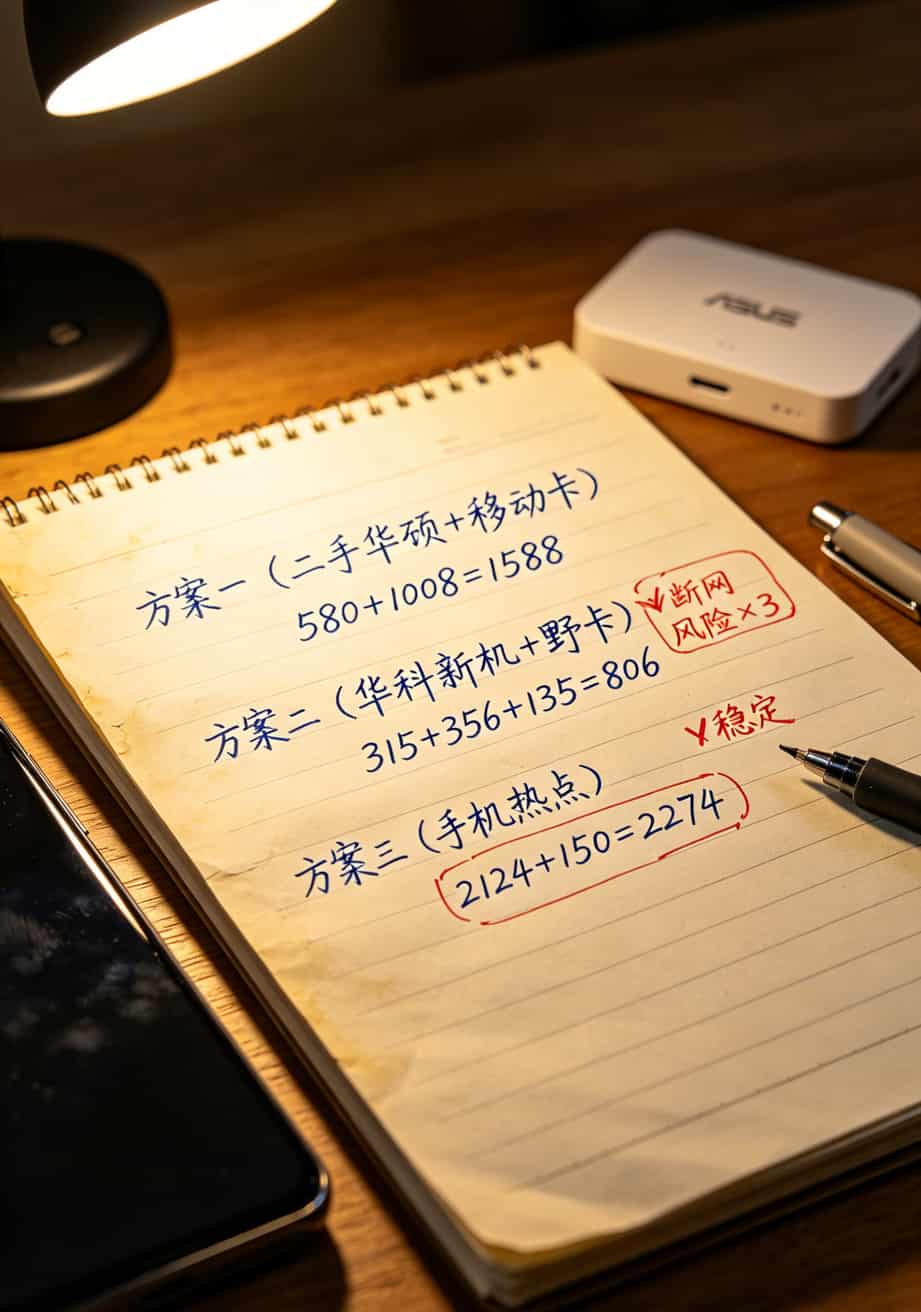 ASUS
方案一（二手华硕+移动卡）
580+1008=1588
断网
风险×3
方案二（华科新机+野卡）
315+356+135=806
稳定
方案三（手机热点）
2124+150=2274